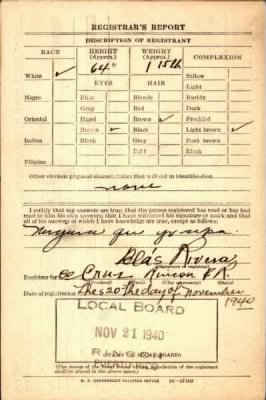 REGISTRAR'S REPORT
DESCRIPTION OF REGISTRANT
RACE HEIGHT (Approx.) WEIGHT (Approx.) COMPLEXION
White ✓ 64" 115 lb Sallow
EYES HAIR Light
Negro Blue Blonde Ruddy
Gray Red Dark
Oriental Hazel Brown ✓ Freckled
Brown ✓ Black Light brown ✓
Indian Black Gray Dark brown
Bald Black
Filipino
Other obvious physical characteristics that will aid in identification
none
I certify that my answers are true; that the person registered has read or has had
read to him his own answers; that I have witnessed his signature or mark and that
all of his answers of which I have knowledge are true, except as follows:
Ninguna que yo sepa
Blas Rivera
(Signature of registrar)
Registrar for Cruz Rincon P.R.
(Precinct) (City or county) (State)
Date of registration the 20 th day of November
1940
LOCAL BOARD
NOV 21 1940
(The stamp of the Local Board having jurisdiction of the registrant
shall be placed in the above space.)
U. S. GOVERNMENT PRINTING OFFICE